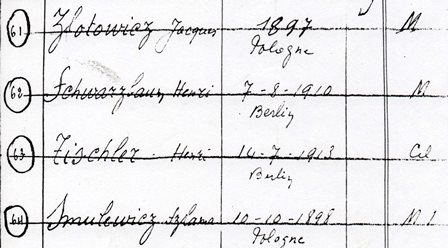 61 Zlotowicz Jacques 1897 M
Pologne
62 Schwarzbaum Henri 7-8-1910 M
Berlin
63 Tischler - Henri 14-7-1913 Cel
Berlin
64 Smulewicz Szlama 10-10-1898 M 1
Pologne